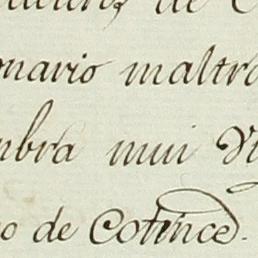 de
onario maltra
mbra mui
o de Cotince.